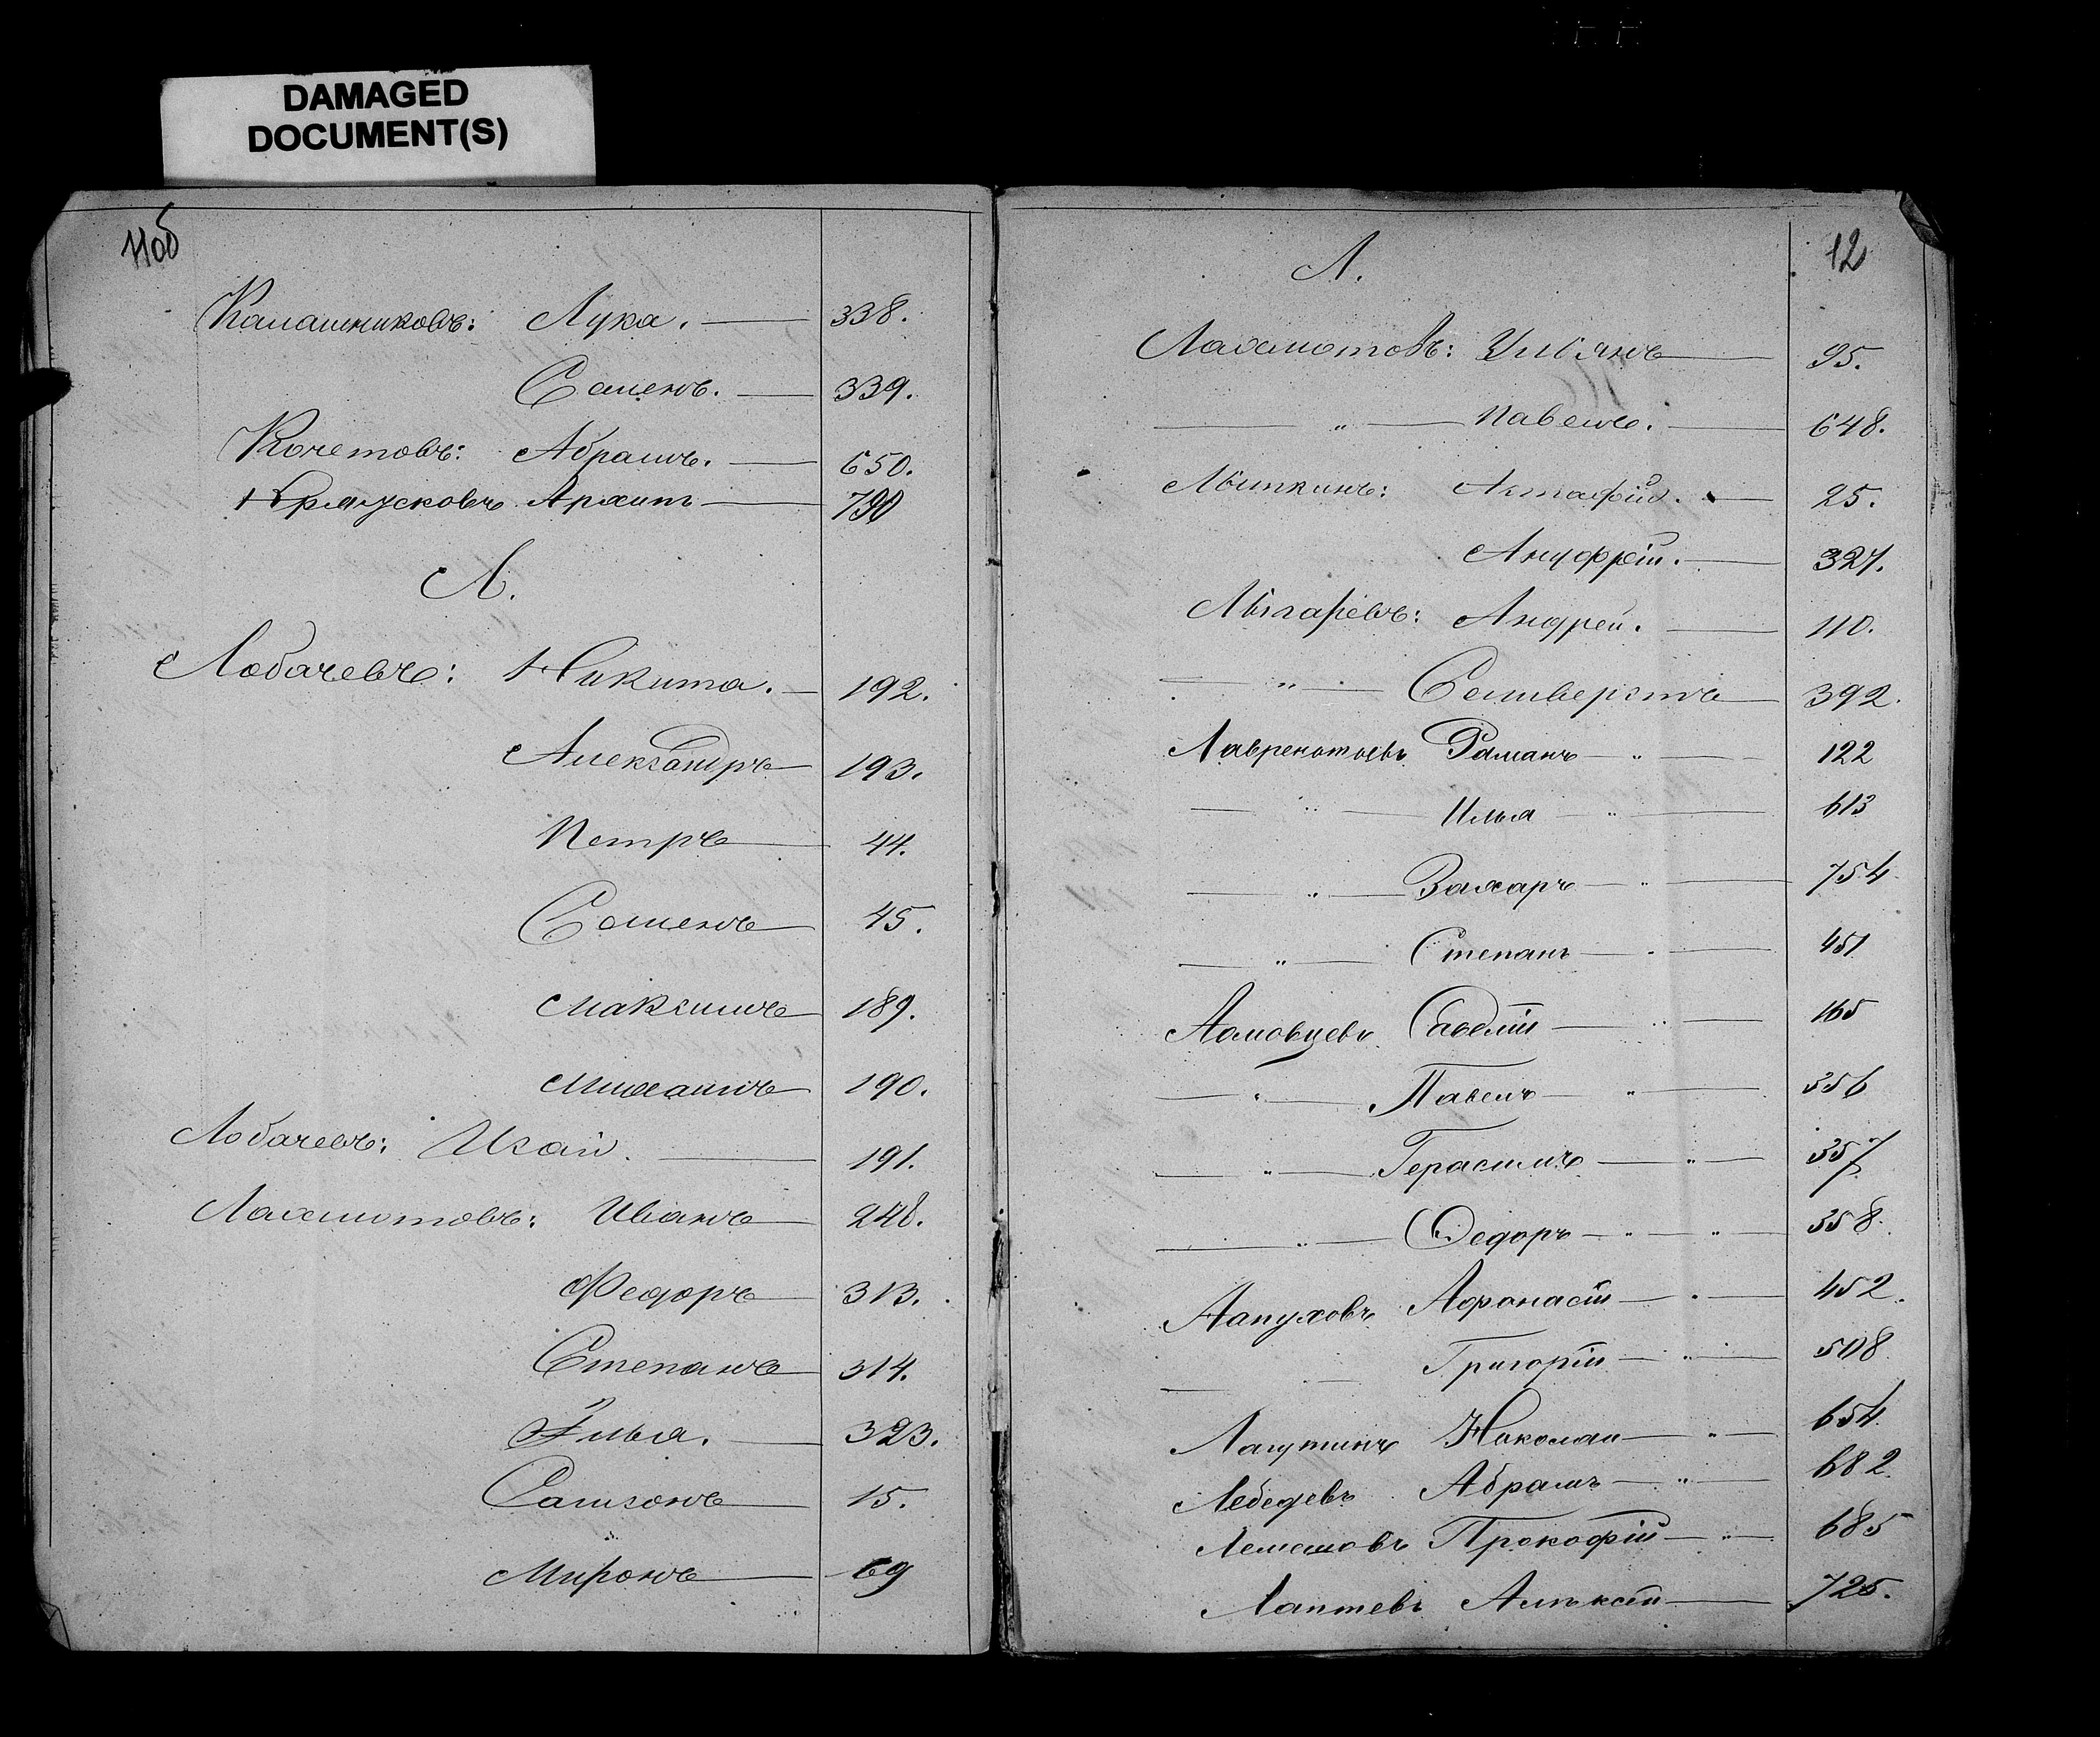 DAMAGED
DOCUMENT(S)
11об
Калашниковъ: Лука. — 338.
Семенъ. — 339.
Кочетовъ: Абрамъ. — 650.
Архипъ — 790
Л.
Лобачевъ: Никита. — 192.
Александръ — 193.
Петръ — 44.
Семенъ — 45.
Максимъ — 189.
Михаилъ — 190.
Лобачевъ: Исай. — 191.
Лахмотовъ: Иванъ — 248.
Федоръ — 313.
Степанъ — 314.
Илья. — 323.
Самсонъ — 15.
Миронъ — 69
12
Л.
Лахмотовъ: Ульянъ — 95.
— „ — Павелъ. — 648.
Лыткинъ: Астафій. — 25.
Ануфрій. — 327.
Лыгаревъ: Андрей. — 110.
— „ — Селиверстъ — 392.
Лаврентьевъ Раманъ — „ — 122
— „ — Илья — „ — 613
— „ — Захаръ — „ — 754
— „ — Степанъ — „ — 451
Ламовцевъ Савелій — „ — 165
— „ — Павелъ — „ — 356
— „ — Герасимъ — „ — 357
— „ — Федоръ — „ — „ — 358.
Лапуховъ Афонасій — „ — 452.
— — Григорій — „ — 508
Лагутинъ Николай — „ — 654.
Лебедевъ Абрамъ — „ — 682.
Лемешовъ Прокофій — „ — 685
Лаптевъ Алексѣй — 725.